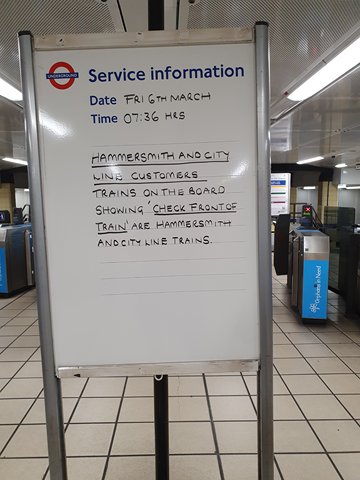 UNDERGROUND
Service information
Date FRI 6TH MARCH
Time 07:36 HRS
HAMMERSMITH AND CITY
LINE CUSTOMERS
TRAINS ON THE BOARD
SHOWING 'CHECK FRONT OF
TRAIN' ARE HAMMERSMITH
AND CITY LINE TRAINS.
Orphans in Need